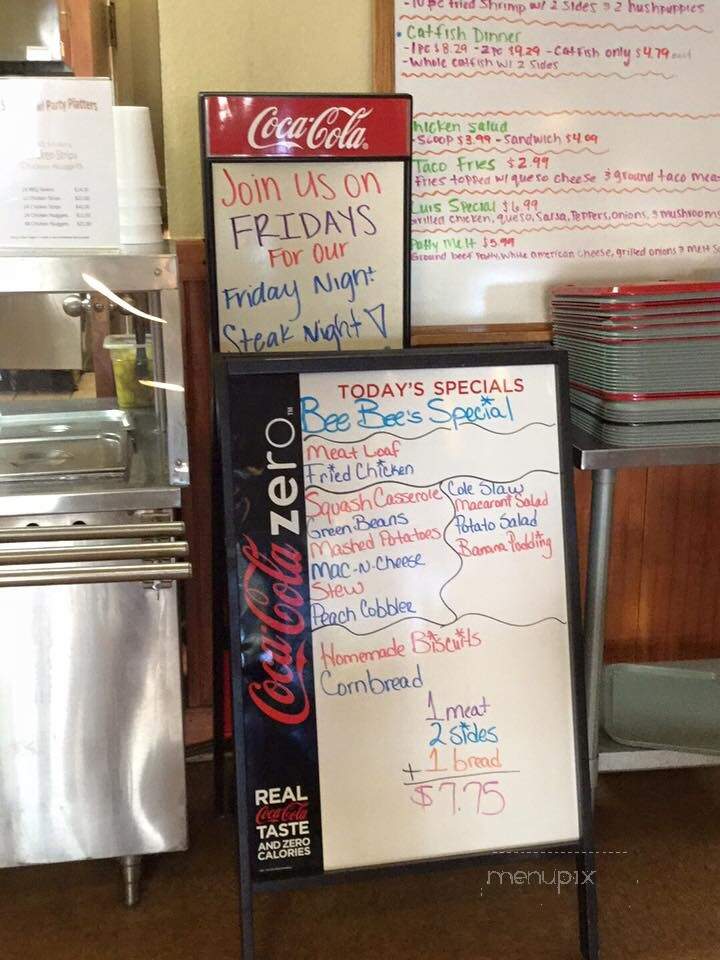 -10 pc fried Shrimp w/ 2 sides & 2 hushpuppies
• Catfish Dinner
-1pc $8.29 -2pc $9.29 -Catfish only $4.79
-whole catfish w/ 2 sides
hicken salad
-Scoop $3.99 -Sandwich $4.09
Taco Fries $2.99
Fries topped w/ queso cheese & ground taco mea
Luis Special $6.99
rilled chicken, queso, salsa, Peppers, onions, & mushrooms
Patty Melt $5.99
Ground beef Patty, white american cheese, grilled onions & melt
Party Platters
Coca-Cola
Join us on
FRIDAYS
For Our
Friday Night
Steak Night!
TODAY'S SPECIALS
Bee Bee's Special
Meat Loaf
Fried Chicken
Squash Casserole
Green Beans
Mashed Potatoes
Mac-N-Cheese
Stew
Peach Cobbler
Cole Slaw
Macaroni Salad
Potato Salad
Banana Pudding
Homemade Biscuits
Cornbread
1 meat
2 sides
+ 1 bread
$7.75
Coca-Cola zero™
REAL
Coca-Cola
TASTE
AND ZERO
CALORIES
menupix